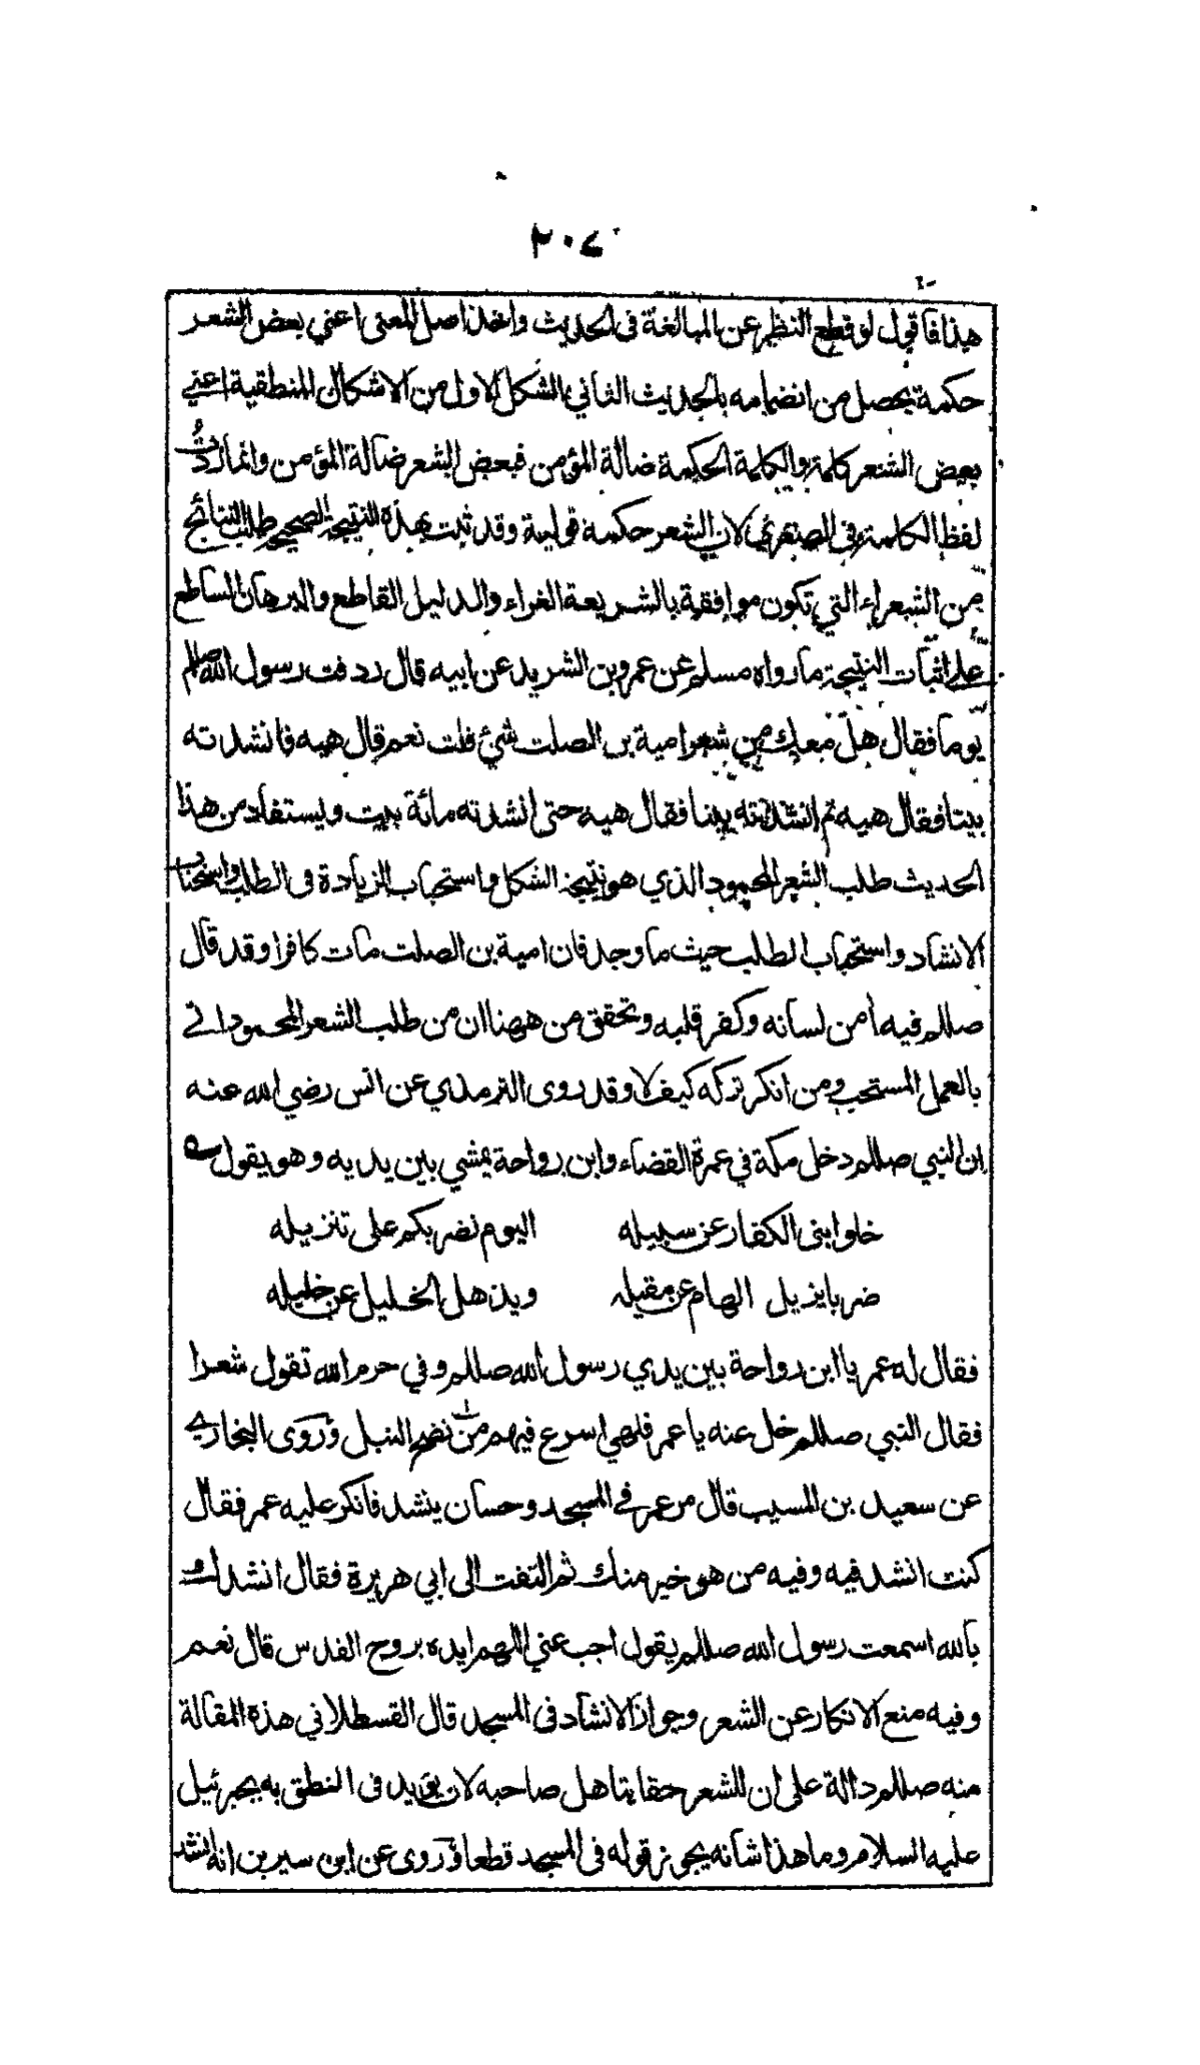 ٢٠٧
هذا فاقول لو قطع النظر عن المبالغة فى الحديث واخذ اصل المعنى اعني بعض الشعر
حكمة يحصل من انضمامه بالحديث الثاني الشكل الاول من الاشكال المنطقية اعني
بعض الشعر كلمة والكلمة الحكمة ضالة المؤمن فبعض الشعر ضالة المؤمن وانما زدتُ
لفظ الكلمة فى الصغرى لان الشعر حكمة قولية وقد ثبت بهذه النتيجة الصحيحة طلب النتائج
من الشعراء التي تكون موافقة بالشريعة الغراء والدليل القاطع والبرهان الساطع
على اثبات النتيجة ما رواه مسلم عن عمرو بن الشريد عن ابيه قال ردفت رسول الله صللم
يوما فقال هل معك من شعر امية بن الصلت شئ قلت نعم قال هيه فانشدته
بيتا فقال هيه ثم انشدته بيتا فقال هيه حتى انشدته مائة بيت ويستفاد من هذا
الحديث طلب الشعر المحمود الذي هو نتيجة الشكل واستحباب الزيادة فى الطلب واستحباب
الانشاد واستحباب الطلب حيث ما وجد فان امية بن الصلت مات كافرا وقد قال
صللم فيه امن لسانه وكفر قلبه وتحقق من ههنا ان من طلب الشعر المحمود اتى
بالعمل المستحب ومن انكر تركه كيف لا وقد روى الترمذي عن انس رضي الله عنه
ان النبي صللم دخل مكة في عمرة القضاء وابن رواحة يمشي بين يديه وهو يقول
خلوا بنى الكفار عن سبيله اليوم نضربكم على تنزيله
ضربا يزيل الهام عن مقيله ويذهل الخليل عن خليله
فقال له عمر يا ابن رواحة بين يدي رسول الله صللم وفي حرم الله تقول شعرا
فقال النبي صللم خل عنه يا عمر فلهي اسرع فيهم من نضح النبل وروى البخاري
عن سعيد بن المسيب قال مر عمر في المسجد وحسان ينشد فانكر عليه عمر فقال
كنت انشد فيه وفيه من هو خير منك ثم التفت الى ابي هريرة فقال انشدك
بالله اسمعت رسول الله صللم يقول اجب عني اللهم ايده بروح القدس قال نعم
وفيه منع الانكار عن الشعر وجواز الانشاد فى المسجد قال القسطلاني هذه المقالة
منه صللم دالة على ان للشعر حقا يتاهل صاحبه لان يؤيد فى النطق به بجبرئيل
عليه السلام وما هذا شانه يجوز قوله فى المسجد قطعا وروى عن ابن سيرين انه انشد